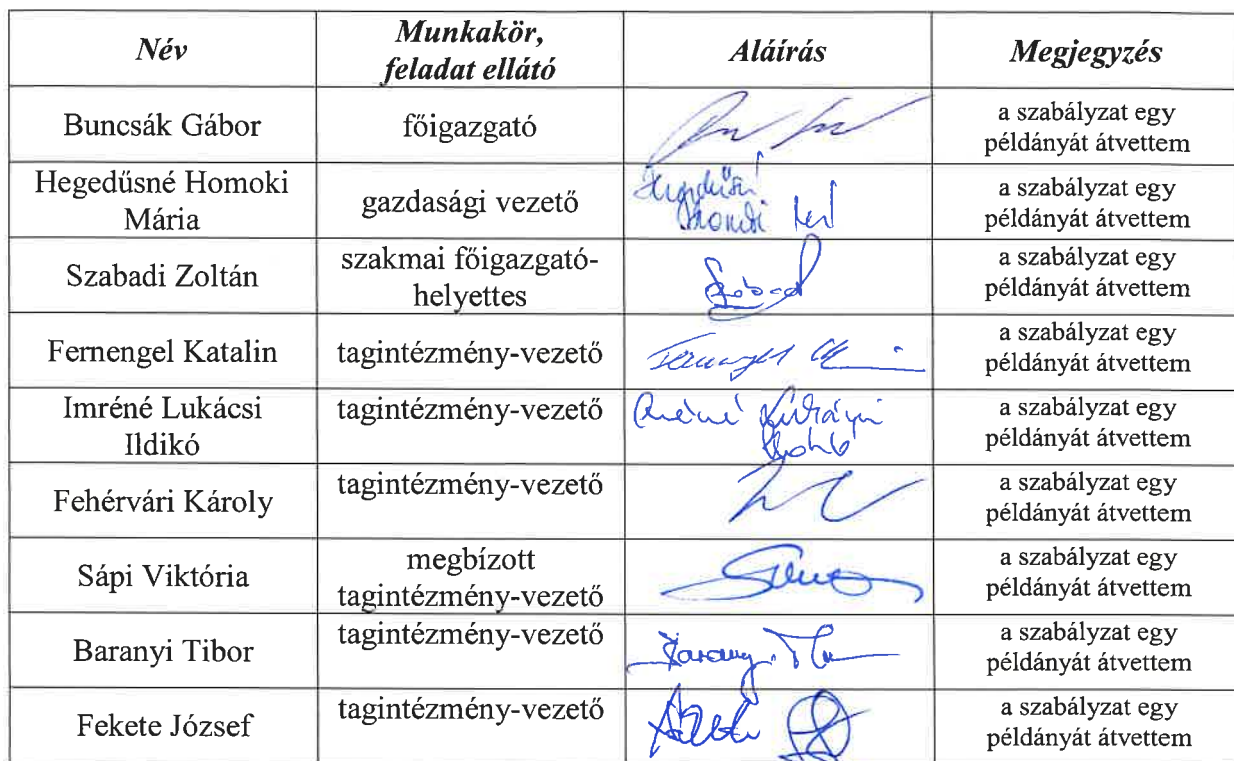 Név
Munkakör,
feladat ellátó
Aláírás
Megjegyzés
Buncsák Gábor
főigazgató
a szabályzat egy
példányát átvettem
Hegedűsné Homoki
Mária
gazdasági vezető
Hegedűsné
Homoki
a szabályzat egy
példányát átvettem
Szabadi Zoltán
szakmai főigazgató-
helyettes
a szabályzat egy
példányát átvettem
Fernengel Katalin
tagintézmény-vezető
a szabályzat egy
példányát átvettem
Imréné Lukácsi
Ildikó
tagintézmény-vezető
a szabályzat egy
példányát átvettem
Fehérvári Károly
tagintézmény-vezető
a szabályzat egy
példányát átvettem
Sápi Viktória
megbízott
tagintézmény-vezető
a szabályzat egy
példányát átvettem
Baranyi Tibor
tagintézmény-vezető
a szabályzat egy
példányát átvettem
Fekete József
tagintézmény-vezető
a szabályzat egy
példányát átvettem